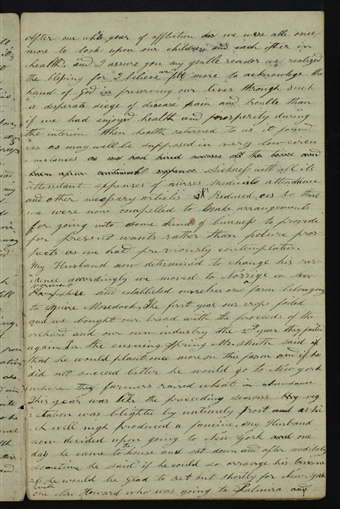 after one whole year of affliction we were able once
more to look upon our children and each other in
health. and I assure you my gentle reader we realized
the blessing for I believe we felt more to acknowledge the
hand of God in preserving our lives through such
a desperate siege of disease pain and trouble than
if we had enjoyed health and prosperity during
the interim When health returned to us it found
us as may well be supposed in very low circu
mstances
sickness with all its
attendant expenses of nurses medicals attendance
and other necessary articles reduced us so that
we were now compelled to make arrangements
for going into some kind of business to provide
for present wants rather than future pros
pects as we had previously contemplated
My Husband now determined to change his res
idence accordingly we moved to Norrige in
vermont and established ourselves on a farm belonging
to Squire Moredock. The first year our crops failed
and we bought our bread with the proceeds of the
orchard and our own industry the 2d year they failed
again In the ensuing spring Mr. Smith said
that he would plant once more on this farm and if he
did not succeed better he would go to New york
where the farmers raised wheat in abundance.
This year was like the preceding seasons
vegetation was blighted by untimely frost
which well nigh produced a famine. my Husband
now decided upon going to New York and one
day he came to house and sat down and after meditating
sometime he said if he could so arrange his business
he would be glad to set out shortly for New York
with one Mr Howard who was going to Palmira